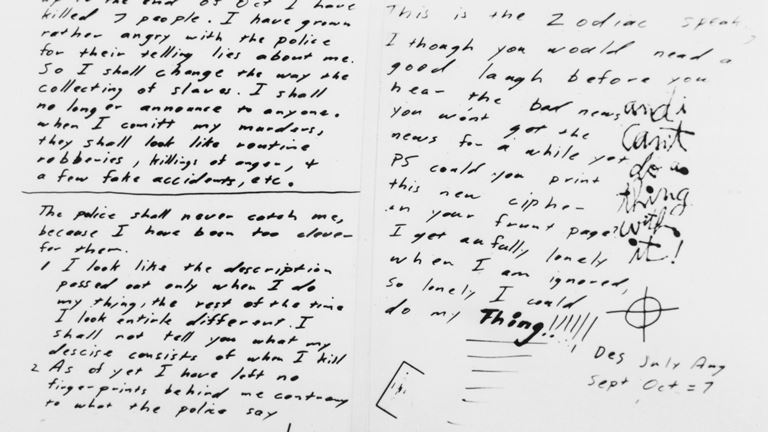 up to the end of Oct I have
killed 7 people. I have grown
rather angry with the police
for their telling lies about me.
So I shall change the way the
collecting of slaves. I shall
no longer announce to anyone.
when I comitt my murders,
they shall look like routine
robberies, killings of anger, +
a few fake accidents, etc.
The police shall never catch me,
because I have been too clever
for them.
1 I look like the description
passed out only when I do
my thing, the rest of the time
I look entirle different. I
shall not tell you what my
descise consists of when I kill
2 As of yet I have left no
fingerprints behind me contrary
to what the police say
This is the Zodiac speak
I though you would need a
good laugh before you
hear the bad news
you won't get the
news for a while yet
PS could you print
this new cipher
in your frunt page?
I get aufully lonely
when I am ignored,
so lonely I could
do my Thing!!!!!!
and i
Can't
do a
thing
with
it!
Des July Aug
Sept Oct = 7